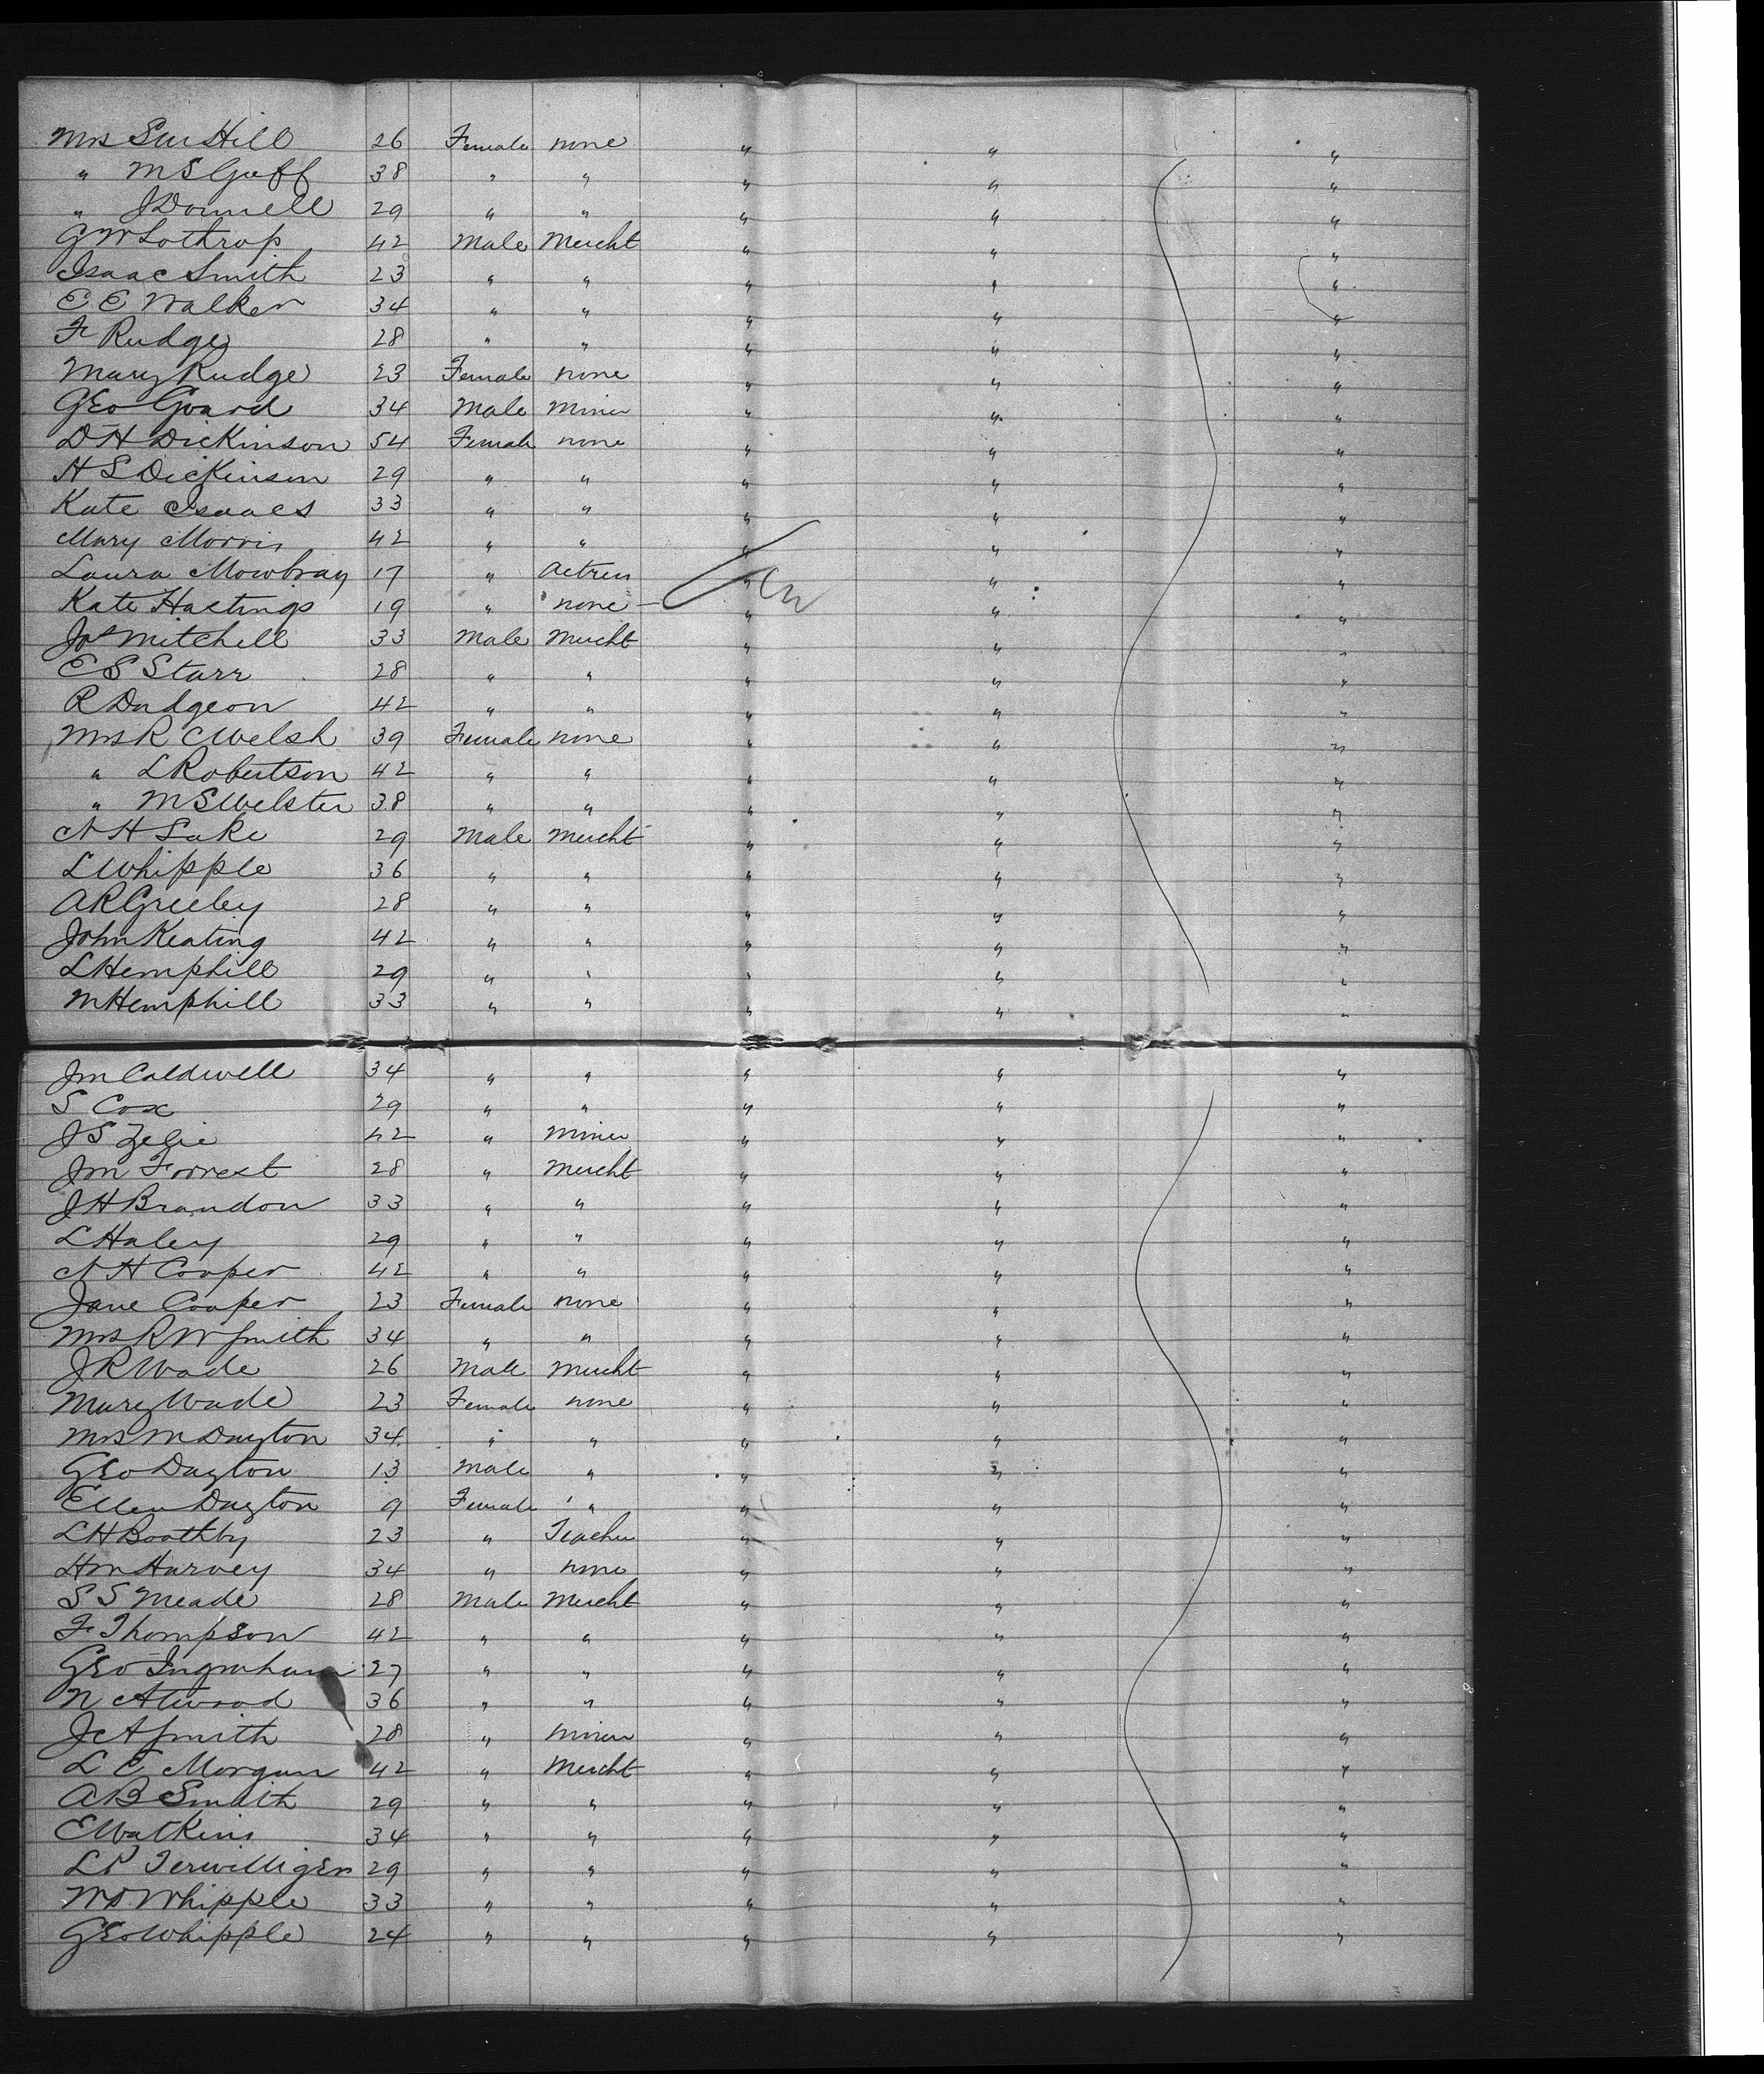 Mrs Sue Hill 26 Female none " " "
" M S Goff 38 " " " " "
" J Donnell 29 " " " " "
G W Lothrop 42 Male Mercht " " "
Isaac Smith 23 " " " " "
E E Walker 34 " " " " "
F Rudge 28 " " " " "
Mary Rudge 23 Female none " " "
Geo Goard 34 Male Miner " " "
D H Dickinson 54 Female none " " "
H S Dickinson 29 " " " " "
Kate Isaacs 33 " " " " "
Mary Morris 42 " " " " "
Laura Mowbray 17 " Actress " " "
Kate Hastings 19 " none " " "
Jos Mitchell 33 Male Mercht " " "
E S Starr 28 " " " " "
R Dudgeon 42 " " " " "
Mrs R C Welsh 39 Female none " " "
" L Robertson 42 " " " " "
" M S Welster 38 " " " " "
N H Lake 29 Male Mercht " " "
L Whipple 36 " " " " "
A R Greeley 28 " " " " "
John Keating 42 " " " " "
L Hemphill 29 " " " " "
M Hemphill 33 " " " " "
J M Caldwell 34 " " " " "
S Cox 29 " " " " "
J S Zelie 42 " Miner " " "
J M Forrest 28 " Mercht " " "
J H Brandon 33 " " " " "
L Haley 29 " " " " "
N H Cooper 42 " " " " "
Jane Cooper 23 Female none " " "
Mrs R W Smith 34 " " " " "
J R Wade 26 Male Mercht " " "
Mary Wade 23 Female none " " "
Mrs M Dayton 34 " " " " "
Geo Dayton 13 Male " " " "
Ellen Dayton 9 Female " " " "
L H Boothby 23 " Teacher " " "
H M Harvey 34 " none " " "
S S Meade 28 Male Mercht " " "
F Thompson 42 " " " " "
Geo Ingraham 27 " " " " "
N Atwood 36 " " " " "
J A Smith 28 " Miner " " "
L C Morgan 42 " Mercht " " "
A B Smith 29 " " " " "
E Watkins 34 " " " " "
L P Terwilliger 29 " " " " "
W D Whipple 33 " " " " "
Geo Whipple 24 " " " " "